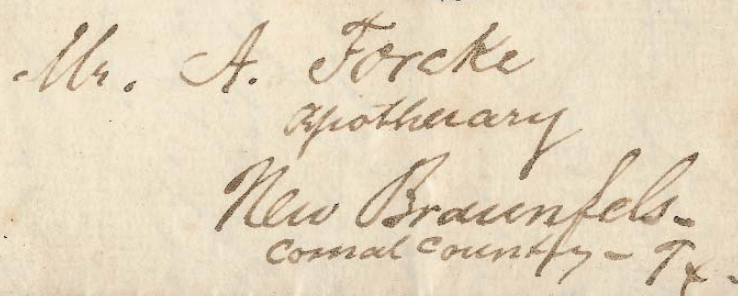 Mr. A. Forcke
Apothecary
New Braunfels -
Comal County - Tx -